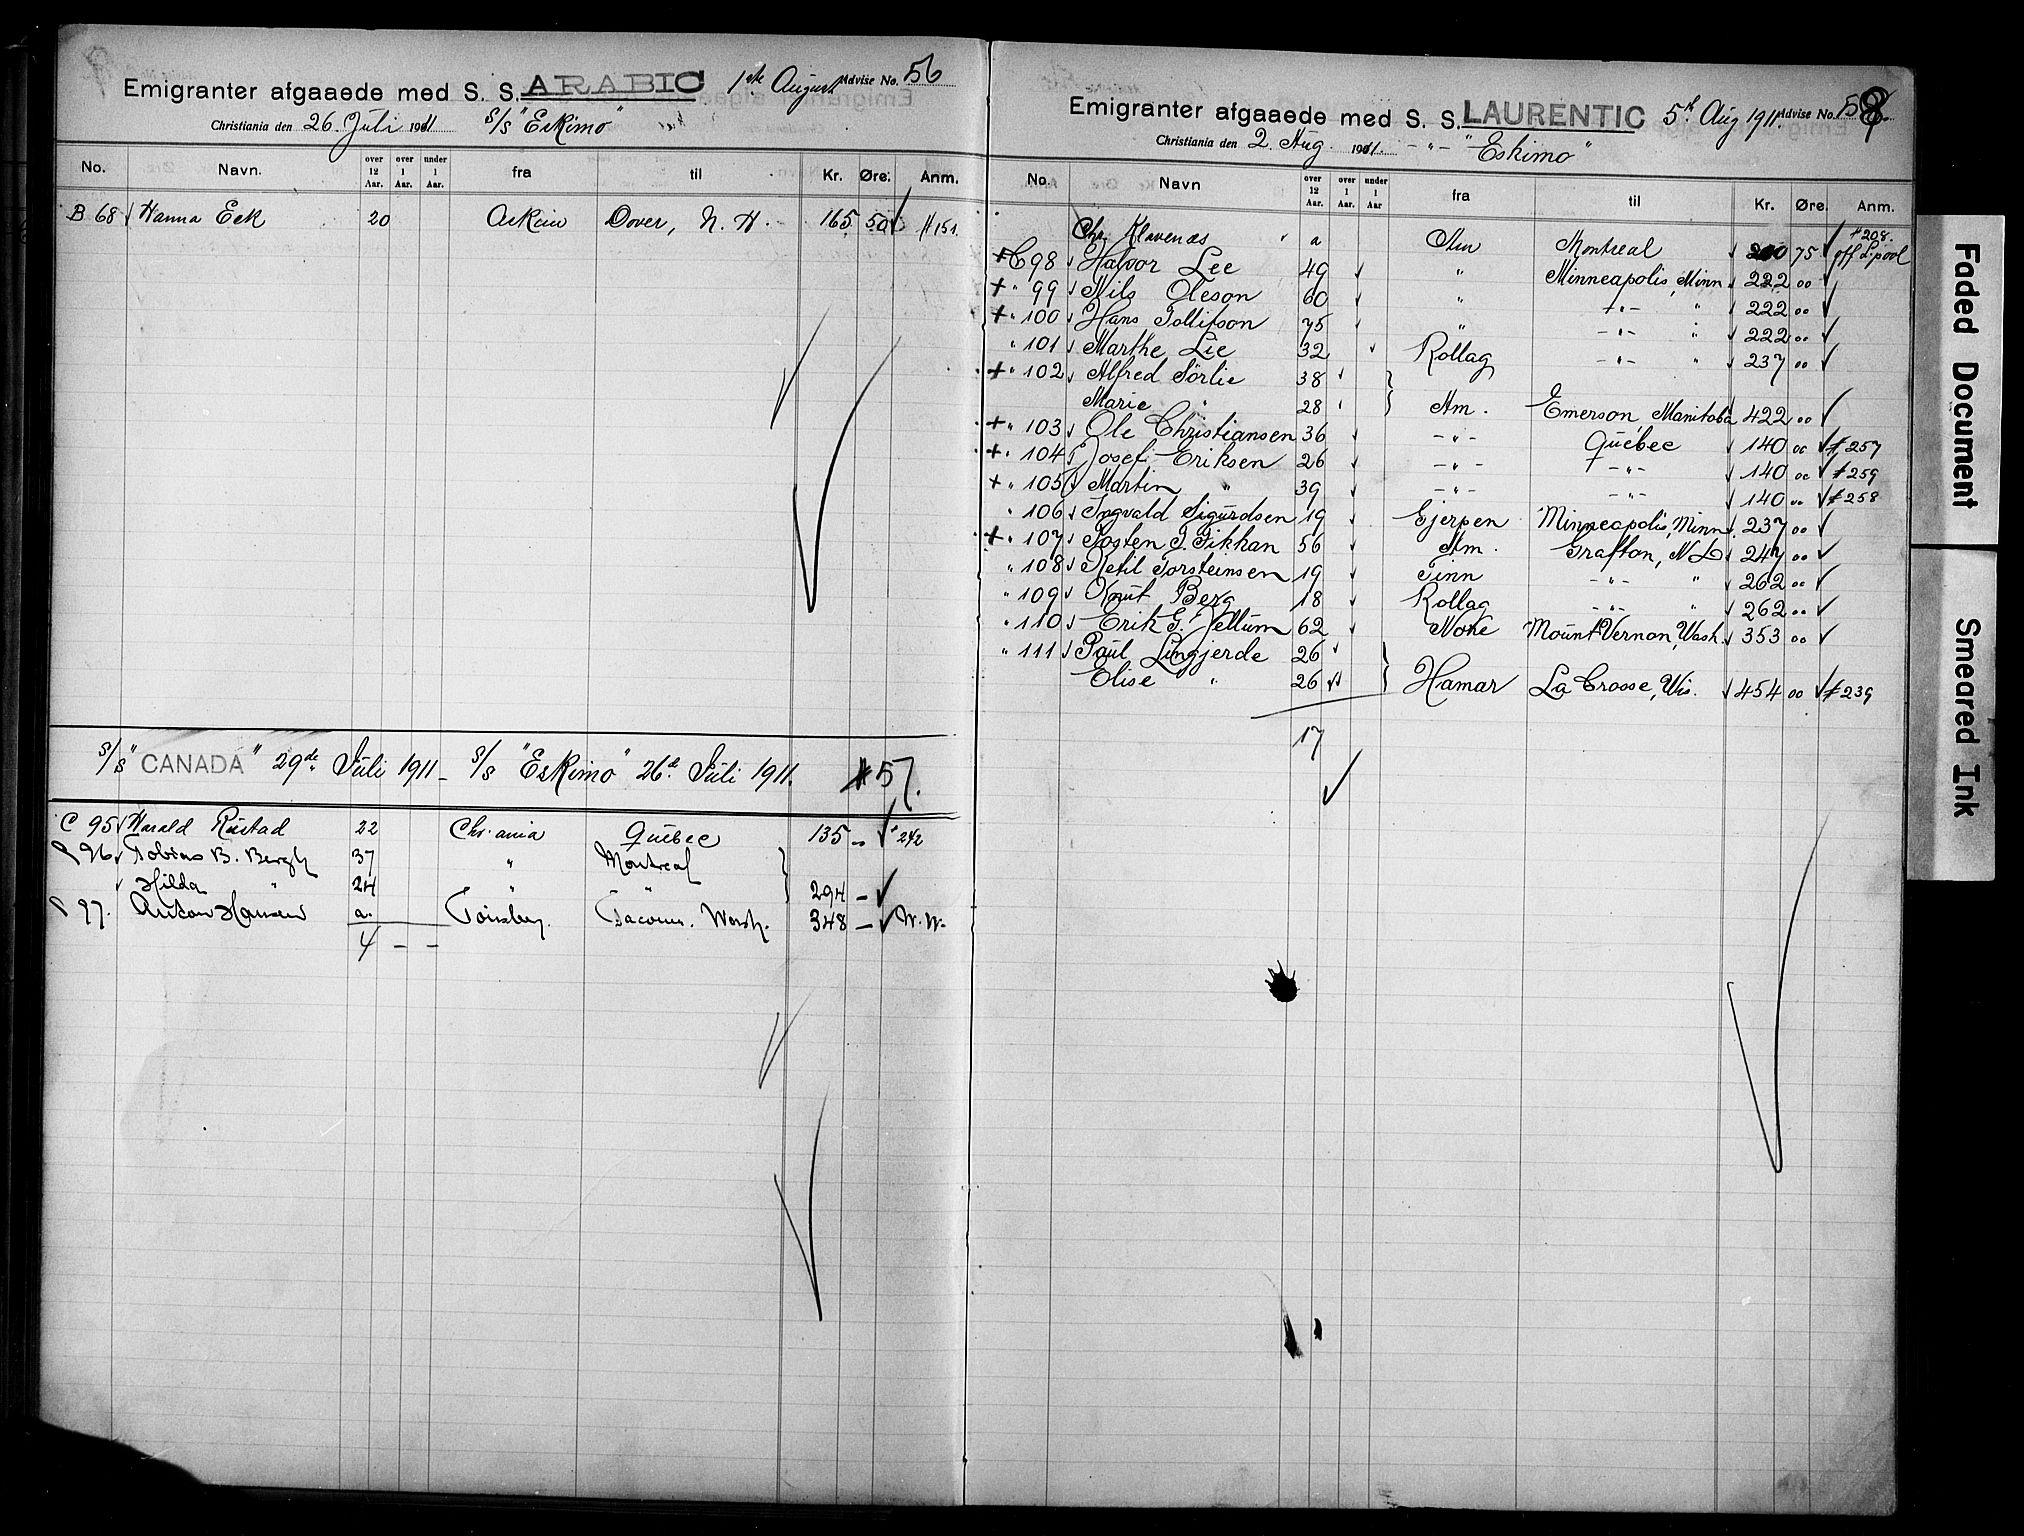 Emigranter afgaaede med S. S. ARABIC 1ste August Advise No. 56
Christiania den 26. Juli 1911 S/S "Eskimo"
No. Navn. over 12 Aar. over 1 Aar. under 1 Aar. fra til Kr. Øre. Anm.
B 68 Hanna Eek 20 Askim Dover, N. H. 165 50 # 151
S/S "CANADA" 29de Juli 1911 - S/S "Eskimo" 26de Juli 1911. # 57.
C 95 Harald Rustad 22 Chr.ania Québec 135 - # 242
" 96 Tobias B. Bergh 37 " Montreal
Hilda " 24 " " 294 -
" 97. Anton Hansen a. Tönsberg. Tacoma. Wash. 348 - W. W.
4 - -
Emigranter afgaaede med S. S. LAURENTIC 5th Aug 1911. Advise No. 58
Christiania den 2. Aug. 1911. - " - "Eskimo"
No. Navn over 12 Aar. over 1 Aar. under 1 Aar fra til Kr. Øre. Anm.
Chr. Klavenæs a Am Montreal 200 75 # 208. off L.pool
+ C 98 Halvor Lee 49 " Minneapolis, Minn 222 00
+ " 99 Nils Oleson 60 " - " - " 222 00
+ " 100 Hans Tollifson 75 " - " - " 222 00
" 101 Marthe Lie 32 Rollag - " - " 237 00
+ " 102 Alfred Sörlie 38
Marie " 28 Am. Emerson Manitoba 422 00
+ " 103 Ole Christiansen 36 - " - Québec 140 00 # 257
+ " 104 Josef Eriksen 26 - " - - " - 140 00 # 259
+ " 105 Martin " 39 - " - - " - 140 00 # 258
" 106 Ingvald Sigurdsen 19 Gjerpen Minneapolis, Minn. 237 00
+ " 107 Tosten J. Fikkan 56 Am. Grafton, N.D 247 00
" 108 Ketil Torsteinsen 19 Tinn - " - " 262 00
" 109 Knut Berg 18 Rollag - " - " 262 00
" 110 Erik G. Jellum 62 Nore Mount Vernon, Wash. 353 00
" 111 Paul Lingjerde 26
Elise " 26 Hamar La Crosse, Wis. 454 00 # 239
17
Faded Document
Smeared Ink